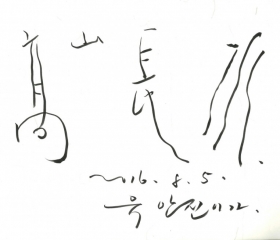 高山長水
2016. 8. 5.
유안진이가.